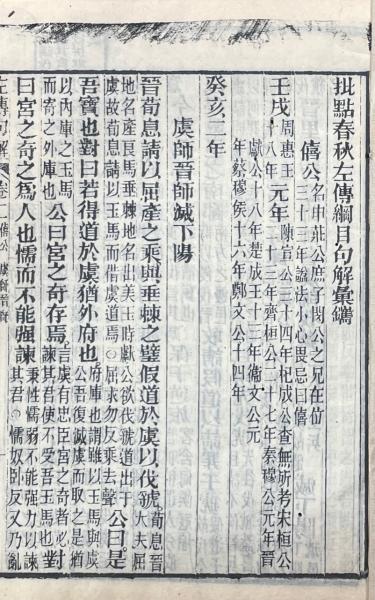 批點春秋左傳綱目句解彙鐫
僖公名申莊公庶子閔公之兄在位
三十三年諡法小心畏忌曰僖
壬戌周惠王元年陳宣公三十四年杞成公查無所考宋桓公
十八年二十三年齊桓公二十七年秦穆公元年晉
獻公十八年楚成王十三年衞文公元
年蔡穆侯十六年鄭文公十四年
癸亥二年
虞師晉師滅下陽
晉荀息請以屈產之乘與垂棘之璧假道於虞以伐虢荀息晉大夫屈
地名產良馬垂棘地名出美玉時獻公欲伐虢道出于
虞故荀息請以玉馬而借虞道焉○屈求勿反乘去聲公曰是
吾寶也對曰若得道於虞猶外府也府庫也謂雖以玉馬與虞
公吾復滅虞而取之是猶
以內庫之玉馬
而寄之外庫也公曰宮之奇存焉言虞有忠臣宮之奇者必
諫其君使不受吾玉馬也對
曰宮之奇之爲人也懦而不能强諫秉性懦弱不能強力以諫
其君○懦奴臥反又乃亂
左傳句解 卷二 僖公